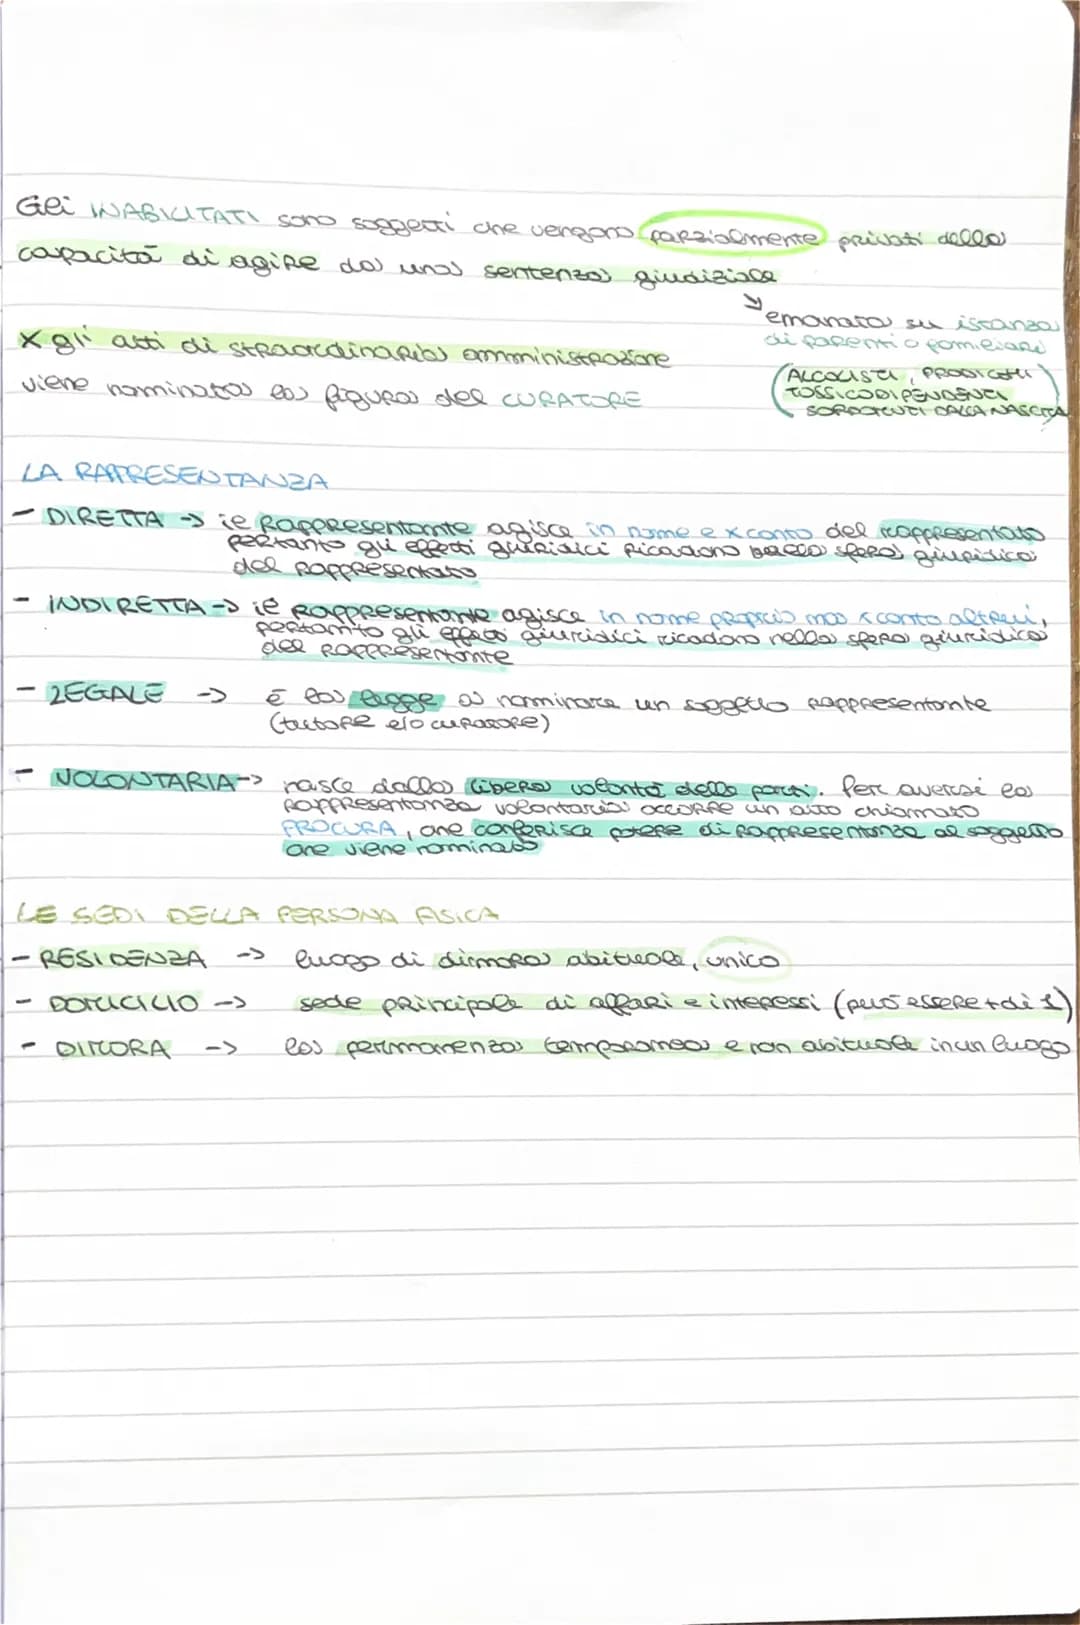 Gli INABILITATI sono soggetti che vengono parzialmente privati della
capacità di agire da una sentenza giudiziale
↘ emanata su istanza
di parenti o familiari
(ALCOLISTI, PRODIGHI
TOSSICODIPENDENTI
SORDOMUTI DALLA NASCITA)
X gli atti di straordinaria amministrazione
viene nominata la figura del CURATORE
LA RAPPRESENTANZA
- DIRETTA -> il rappresentante agisce in nome e x conto del rappresentato
pertanto gli effetti giuridici ricadono nella sfera giuridica
del rappresentato
- INDIRETTA -> il rappresentante agisce in nome proprio ma x conto altrui,
pertanto gli effetti giuridici ricadono nella sfera giuridica
del rappresentante
- LEGALE -> è la legge a nominare un soggetto rappresentante
(tutore e/o curatore)
- VOLONTARIA -> nasce dalla libera volontà delle parti. Per aversi la
rappresentanza volontaria occorre un atto chiamato
PROCURA, che conferisce potere di rappresentanza al soggetto
che viene nominato
LE SEDI DELLA PERSONA FISICA
- RESIDENZA -> luogo di dimora abituale, unico
- DOMICILIO -> sede principale di affari e interessi (può essere + di 1)
- DIMORA -> la permanenza temporanea e non abituale in un luogo